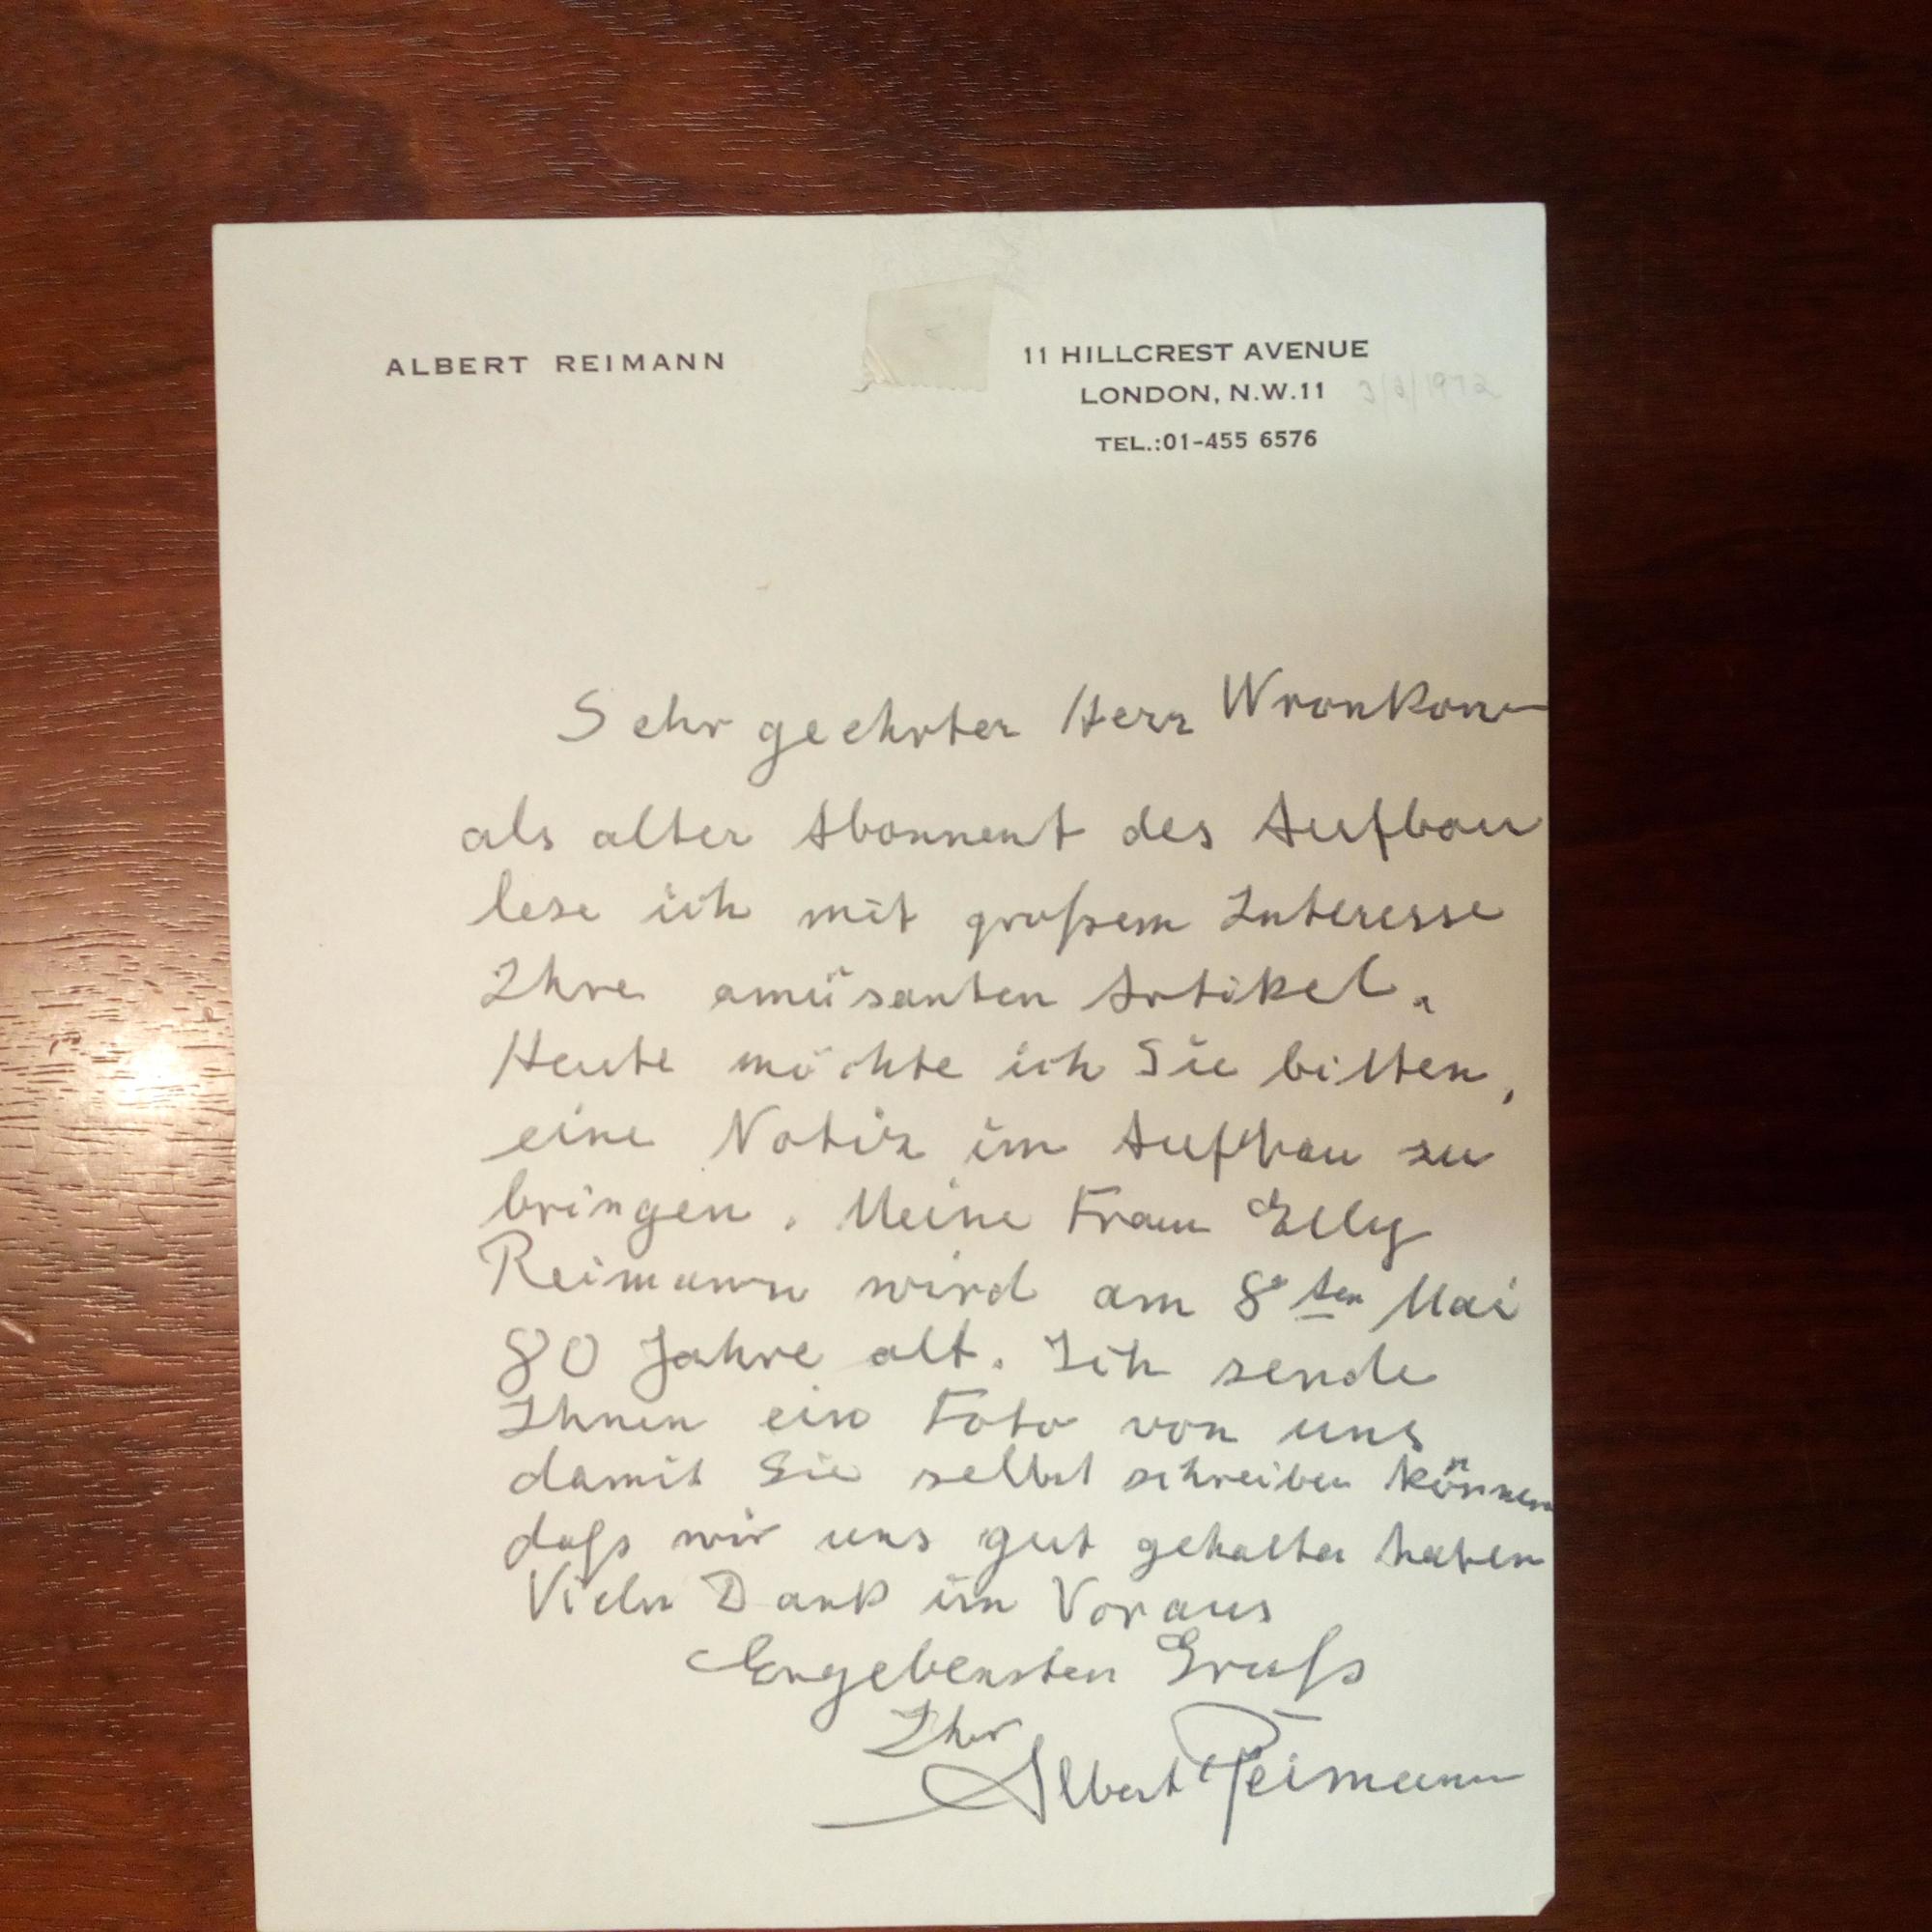 ALBERT REIMANN
11 HILLCREST AVENUE
LONDON, N.W.11
TEL.:01-455 6576
Sehr geehrter Herr
als alter Abonnent des Aufbau
lese ich mit großem Interesse
Ihre amüsanten Artikel.
Heute möchte ich Sie bitten,
eine Notiz im Aufbau zu
bringen. Meine Frau Elly
Reimann wird am 8ten Mai
80 Jahre alt. Ich sende
Ihnen ein Foto von uns
damit Sie selbst schreiben können
daß wir uns gut gehalten haben
Vielen Dank im Voraus
Ergebensten Gruß
Ihr
Albert Reimann